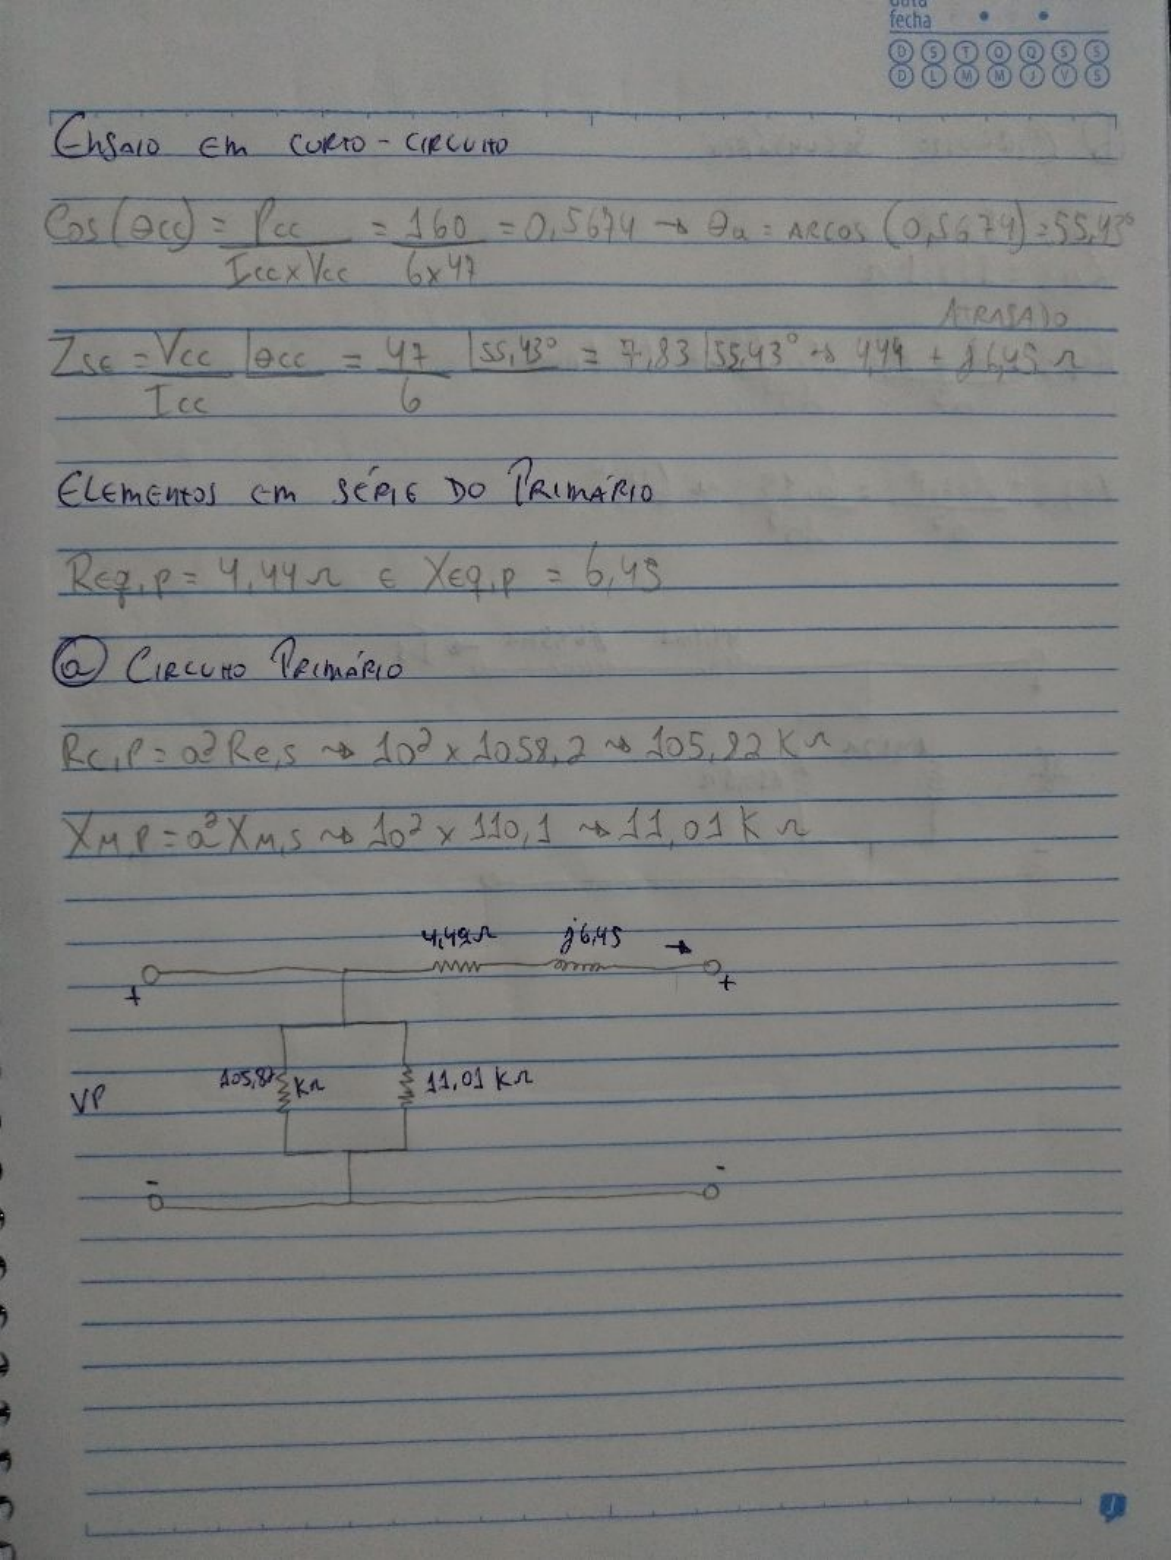 data
fecha
D S T Q Q S S
D L M M J V S
Ensaio em curto-circuito
Cos(θcc) = Pcc / IccxVcc = 160 / 6x47 = 0,5674 → θcc = ARCOS (0,5674) = 55,43°
ATRASADO
Zse = Vcc / Icc |θcc = 47 / 6 |55,43° = 7,83 |55,43° → 4,44 + j6,45 Ω
Elementos em série do Primário
Req,p = 4,44 Ω e Xeq,p = 6,45
a Circuito Primário
Rc,p = a² Rc,s → 10² x 1058,2 → 105,82 KΩ
XM,P = a² XM,S → 10² x 110,1 → 11,01 KΩ
4,49Ω j6,45 →
+ +
105,82 KΩ 11,01 KΩ
VP
- -